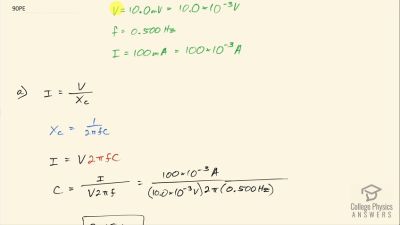 90PE
V = 10.0 mV = 10.0 × 10⁻³ V
f = 0.500 Hz
I = 100 mA = 100 × 10⁻³ A
a) I = V / X_C
X_C = 1 / 2πfC
I = V 2πfC
C = I / V2πf = 100 × 10⁻³ A / (10.0 × 10⁻³ V) 2π (0.500 Hz)
College Physics
ANSWERS